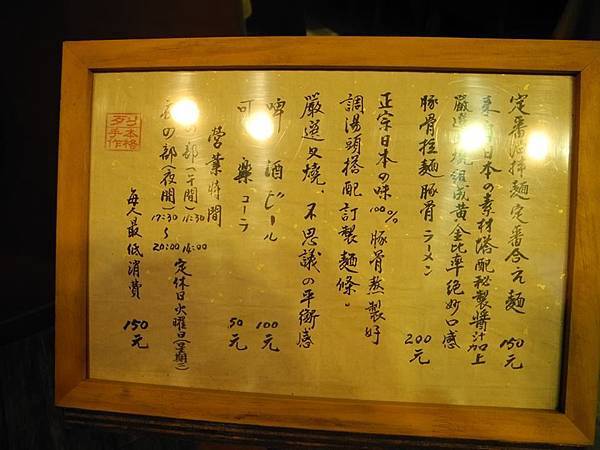 定番沾麵定番合え麵 150元
來自日本の素材搭配秘製醬汁加上
嚴選叉燒組成黃金比率絕妙口感
豚骨拉麵豚骨ラーメン 200元
正宗日本の味100%豚骨熬製好
調湯頭搭配訂製麵條。
嚴選叉燒、不思議の平衡感
啤酒ビール 100元
可樂コーラ 50元
營業時間
の部(午間)11:30
14:00
夜の部(夜間)17:30~
20:00
定休日火曜日(星期二)
每人最低消費 150元
本格
手作